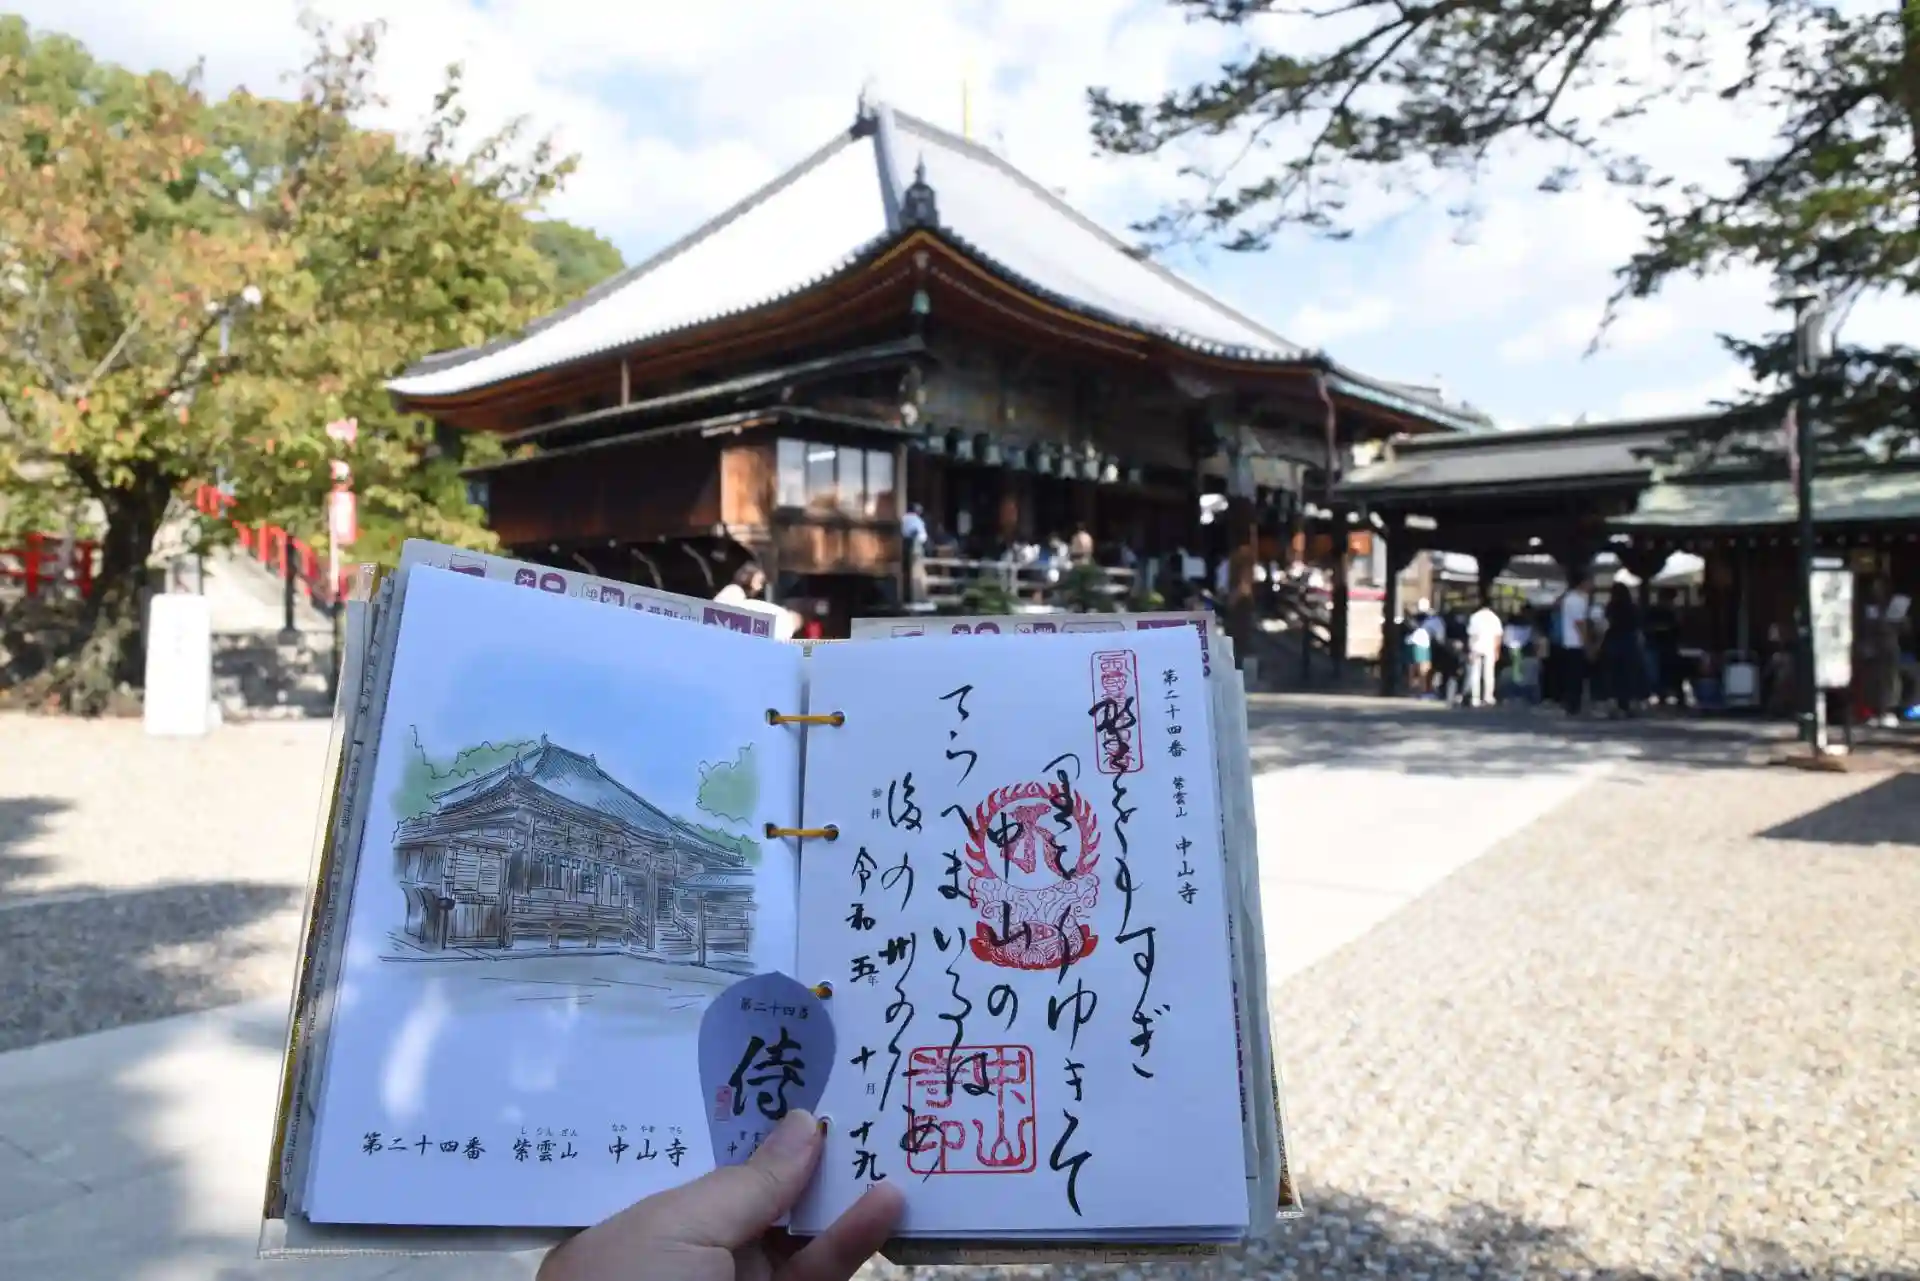 第二十四番 紫雲山 中山寺
しうんざん なかやまでら
第二十四番
侍
第二十四番 紫雲山 中山寺
野をもすぎ
里をもゆきて
中山の
てらへまいるは
後の世のため
参拝
令和五年十月十九日
中山寺印